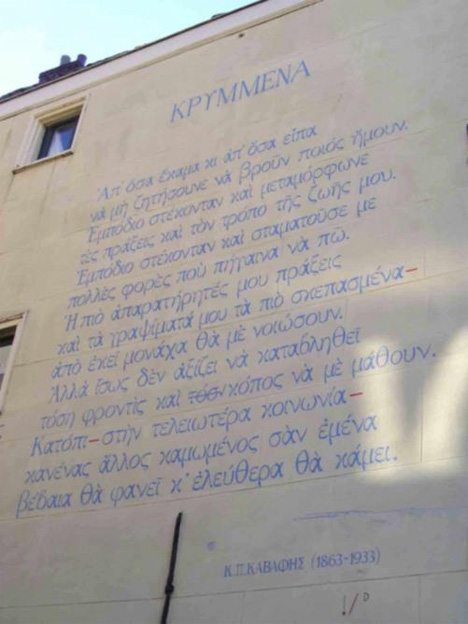 ΚΡΥΜΜΕΝΑ
Ἀπ' ὅσα ἔκαμα κι ἀπ' ὅσα εἶπα
νὰ μὴ ζητήσουνε νὰ βροῦν ποιός ἤμουν.
Ἐμπόδιο στέκονταν καὶ μεταμόρφωνε
τὲς πράξεις καὶ τὸν τρόπο τῆς ζωῆς μου.
Ἐμπόδιο στέκονταν καὶ σταματοῦσε με
πολλὲς φορὲς ποὺ πήγαινα νὰ πῶ.
Ἡ πιὸ ἀπαρατήρητές μου πράξεις
καὶ τὰ γραψίματά μου τὰ πιὸ σκεπασμένα—
ἀπὸ ἐκεῖ μονάχα θὰ μὲ νοιώσουν.
Ἀλλὰ ἴσως δὲν ἀξίζει νὰ καταβληθεῖ
τόση φροντὶς καὶ τόσν κόπος νὰ μὲ μάθουν.
Κατόπι—στὴν τελειωτέρα κοινωνία—
κανένας ἄλλος καμωμένος σὰν ἐμένα
βέβαια θὰ φανεῖ κ' ἐλεύθερα θὰ κάμει.
Κ.Π.ΚΑΒΑΦΗΣ (1863-1933)